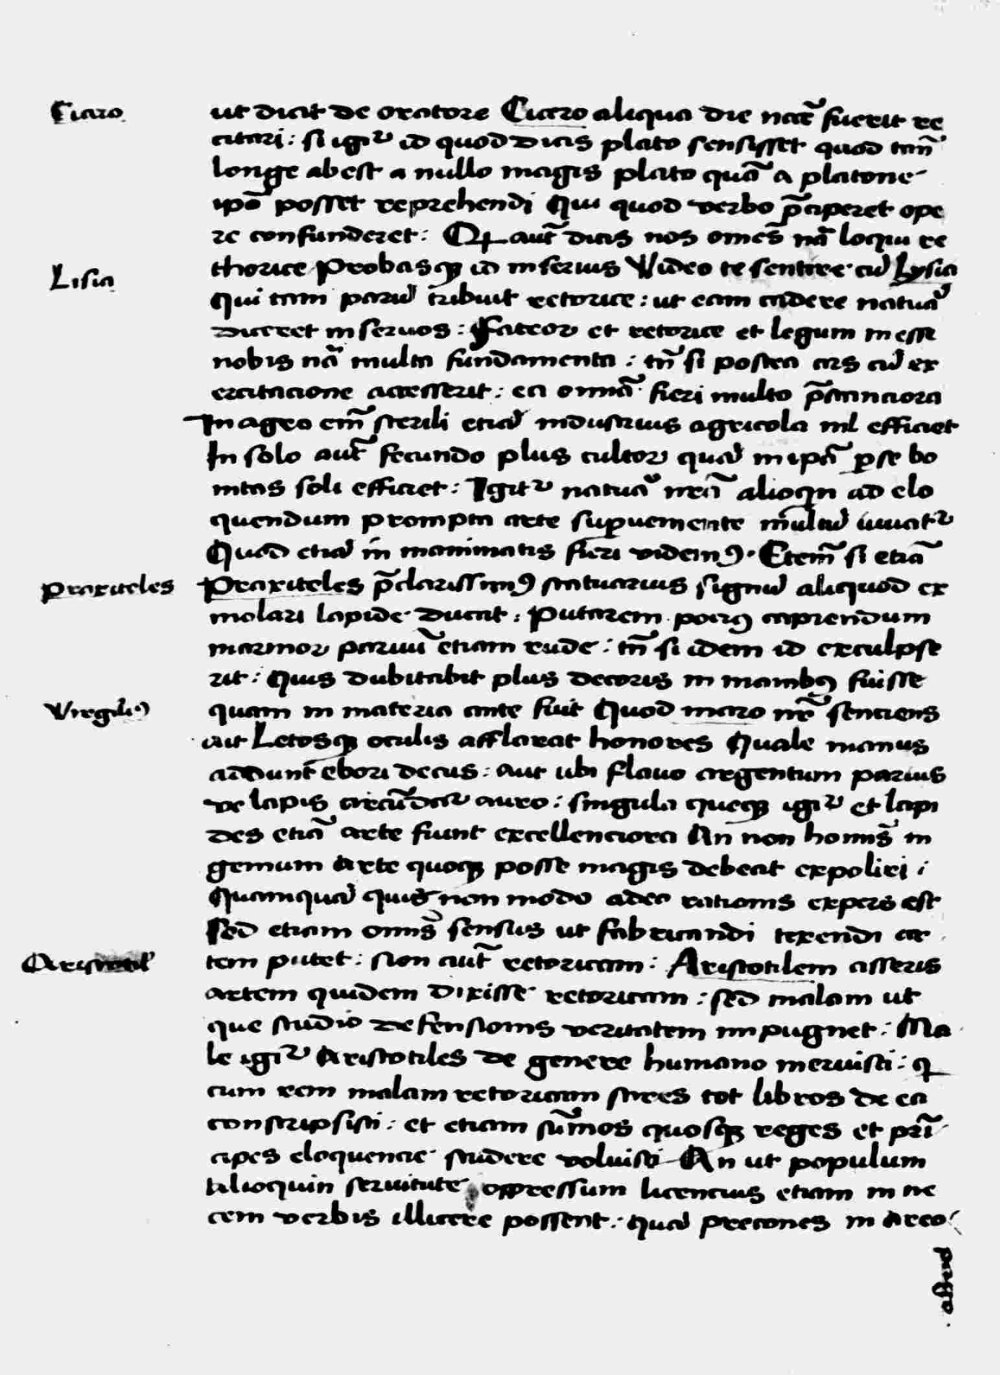 Cicero
ut dicit de oratore Cicero aliqua die nar̄ fuerit re
citari : si igr̄ id quod dicis plato sensisset quod tan̄
longe abest a nullo magis plato quā a platone
ip̄o posset reprehendi Qui quod verbo p̄ciperet ope
re confunderet : Qꝫ aut̄ dicis nos om̄es nā loqui re
Lisia
thorice Probasqꝫ id in servis Video te sentire cū Lysia
Qui tam parū tribuit retorice : ut eam cadere natuā
diceret in servos : Fateor et retorice et legum inesse
nobis nā multa fundamenta : tn̄ si postea ars cū ex
ercitacione accesserit : ea om̄ia fieri multo p̄stanciora
In agro em̄ sterili etiā industrius agricola nil efficiet
In solo aut̄ fecundo plus cultor quā in ip̄a per se bo
nitas soli efficiet : Igitr̄ natuā nrā̄ alioqn̄ ad elo
quendum prompta arte supveniente m̄ultū iuuatr̄
Quod etiā in inanimatis fieri videmꝰ. Etem̄ si etiā
Praxiteles
Praxiteles p̄clarissimꝰ statuarius signū aliquod ex
molari lapide ducat : Putarem pociꝰ capiendum
marmor pariū etiam rude : tn̄ si idem id exculpse
rit : Quis dubitabit plus decoris in manibꝰ fuisse
Virgiliꝰ
quam in materia ante fuit Quod maro nr̄ senciens
ait Letosqꝫ oculis afflarat honores Quale manus
addunt ebori decus : aut ubi flavo argentum parius
ve lapis circūdatr̄ auro : singula queqꝫ igr̄ et lapi
des etiā arte fiunt excellenciora An non homīs in
genium Arte quoqꝫ posse magis debeat expoliri ;
Quamquā quis non modo adeo rationis expers est
Sed etiam om̄is sensus ut fabricandi texendi ar
Aristotil'
tem putet : non aut̄ retoricam : Aristotilem asseris
artem quidem dixisse retoricam : sed malam ut
que studio defensionis veritatem impugnet : Ma
le igr̄ Aristotiles de genere humano meruisti : qꝫ
cum rem malam retoricam scires tot libros de ea
conscripsisti : et etiam sūmos quosqꝫ reges et prī
cipes eloquencie studere voluisti An ut populum
alioquin servitute oppressum licencius etiam in ne
cem verbis illicere possent : quā precones in Areo
asserd